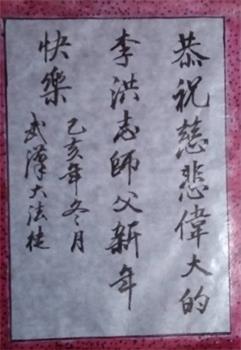 恭祝慈悲偉大的
李洪志師父新年
快樂
乙亥年冬月
武漢大法徒